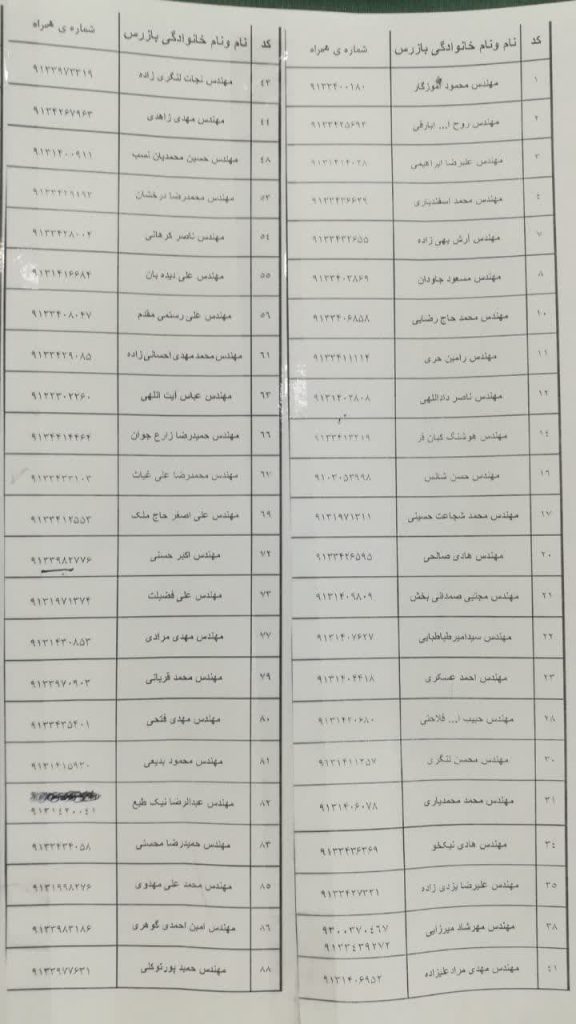 کد نام ونام خانوادگی بازرس شماره ی همراه
۱ مهندس محمود آموزگار ۹۱۳۳۴۰۰۱۸۰
۲ مهندس روح ا... ابارقی ۹۱۳۳۴۲۵۶۹۳
۳ مهندس علیرضا ابراهیمی ۹۱۳۱۴۱۴۰۲۸
٤ مهندس محمد اسفندیاری ۹۱۳۳۴۳۶۶۳۹
۷ مهندس آرش بهی زاده ۹۱۳۳۴۳۲۶۵۵
۸ مهندس مسعود جاودان ۹۱۳۳۴۰۳۸۶۹
۱۰ مهندس محمد حاج رضایی ۹۱۳۳۴۰۶۸۵۸
۱۱ مهندس رامین حری ۹۱۳۳۴۱۱۱۱۴
۱۲ مهندس ناصر داداللهی ۹۱۳۱۴۰۲۸۰۸
۱٤ مهندس هوشنگ کیان فر ۹۱۳۳۴۱۳۲۱۹
۱۶ مهندس حسن شانس ۹۱۰۳۰۵۳۹۹۸
۱۷ مهندس محمد شجاعت حسینی ۹۱۳۱۹۷۱۳۱۱
۲۰ مهندس هادی صالحی ۹۱۳۳۴۲۶۵۹۵
۲۱ مهندس مجتبی صمدانی بخش ۹۱۳۱۴۰۹۸۰۹
۲۲ مهندس سیدامیرطباطبایی ۹۱۳۱۴۰۷۶۲۷
۲۳ مهندس احمد عسکری ۹۱۳۱۴۰۴۴۱۸
۲۸ مهندس حبیب ا... فلاحتی ۹۱۳۱۴۲۰۶۸۰
۳۰ مهندس محسن لنگری ۹۱۳۱۴۱۱۲۵۷
۳۱ مهندس محمد محمدیاری ۹۱۳۱۴۰۶۰۷۸
۳٤ مهندس هادی نیکخو ۹۱۳۳۴۳۶۳۶۹
۳۵ مهندس علیرضا یزدی زاده ۹۱۳۳۴۲۷۳۳۱
۳۸ مهندس مهرشاد میرزایی ۹۳۰۰۳۷۰٤٦۷
۹۱۳۳٤۳۹۲۷۲
٤۱ مهندس مهدی مرادعلیزاده ۹۱۳۱۴۰۶۹۵۲
کد نام ونام خانوادگی بازرس شماره ی همراه
٤۳ مهندس نجات لنگری زاده ۹۱۳۳۹۷۳۳۱۹
٤٤ مهندس مهدی زاهدی ۹۱۳۴۲۶۷۹۶۳
٤۸ مهندس حسین محمدیان نسب ۹۱۳۱۴۰۰۹۱۱
۵۳ مهندس محمدرضا درخشان ۹۱۳۳۴۲۹۱۹۲
۵٤ مهندس ناصر کرمانی ۹۱۳۳۴۲۸۰۰۲
۵۵ مهندس علی دیده بان ۹۱۳۱۴۱۶۶۸۴
۵۶ مهندس علی رستمی مقدم ۹۱۳۳۴۰۸۰۴۷
۶۱ مهندس محمد مهدی احسانی زاده ۹۱۳۳۴۲۹۰۸۵
۶۳ مهندس عباس آیت اللهی ۹۱۲۲۳۰۲۲۶۰
۶۶ مهندس حمیدرضا زارع جوان ۹۱۳۴۴۱۴۴۶۴
۶۷ مهندس محمدرضا علی غیاث ۹۱۳۳۴۳۳۱۰۳
۶۹ مهندس علی اصغر حاج ملک ۹۱۳۳۴۱۲۵۵۳
۷۲ مهندس اکبر حسنی ۹۱۳۳۹۸۲۷۷۶
۷۳ مهندس علی فضیلت ۹۱۳۱۹۷۱۳۷۴
۷۷ مهندس مهدی مرادی ۹۱۳۱۴۳۰۸۵۳
۷۹ مهندس محمد قربانی ۹۱۳۳۹۷۰۹۰۳
۸۰ مهندس مهدی فتحی ۹۱۳۳۴۳۵۴۰۱
۸۱ مهندس محمود بدیعی ۹۱۳۱۴۱۵۹۳۰
۸۲ مهندس عبدالرضا نیک طبع ۹۱۳۱٤۲۰۰٤۱
۸۳ مهندس حمیدرضا محسنی ۹۱۳۳۴۳۴۰۵۸
۸۵ مهندس محمد علی مهدوی ۹۱۳۱۹۹۸۲۷۶
۸۶ مهندس امین احمدی گوهری ۹۱۳۳۹۸۳۱۸۶
۸۸ مهندس حمید پورتوکلی ۹۱۳۳۹۷۷۶۳۱